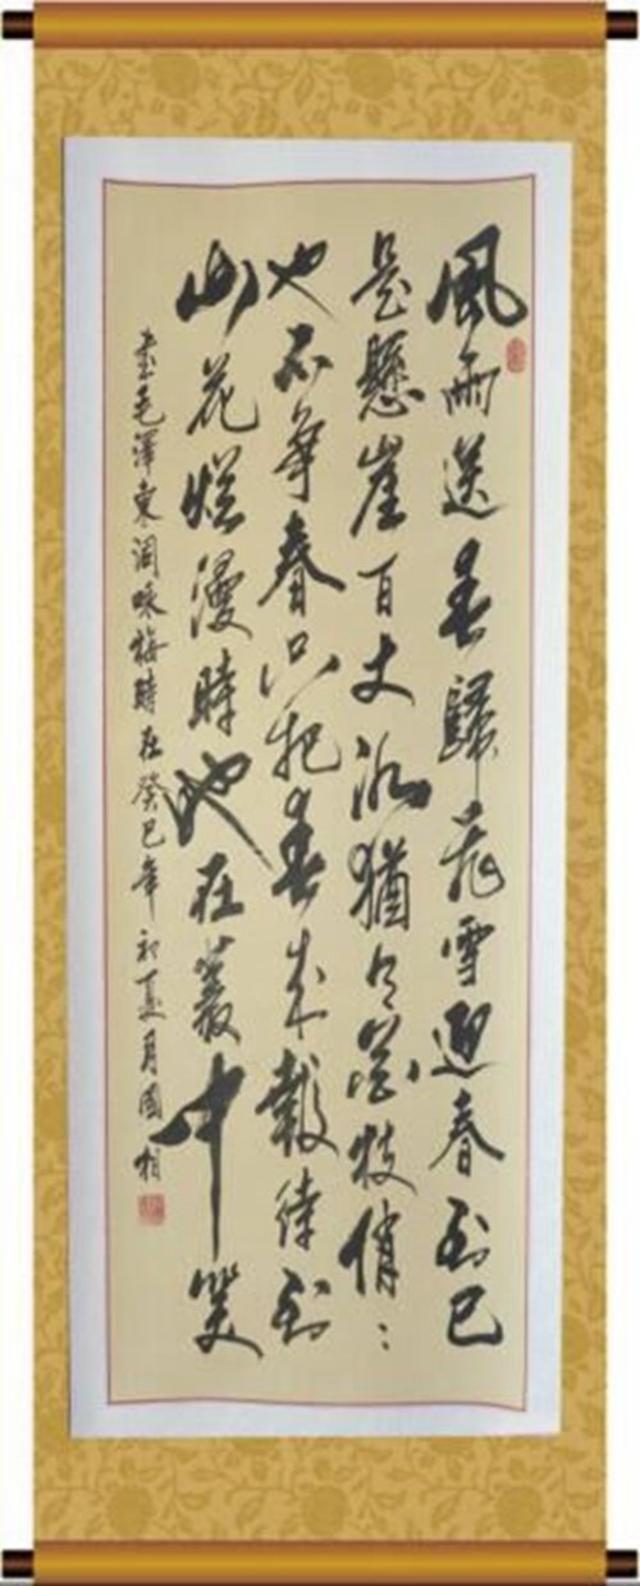 風雨送春歸飛雪迎春到已
是懸崖百丈冰猶有花枝俏：
也不爭春只把春來報待到
山花爛漫時她在叢中笑
書毛澤東詞咏梅時在癸巳年初夏月國相